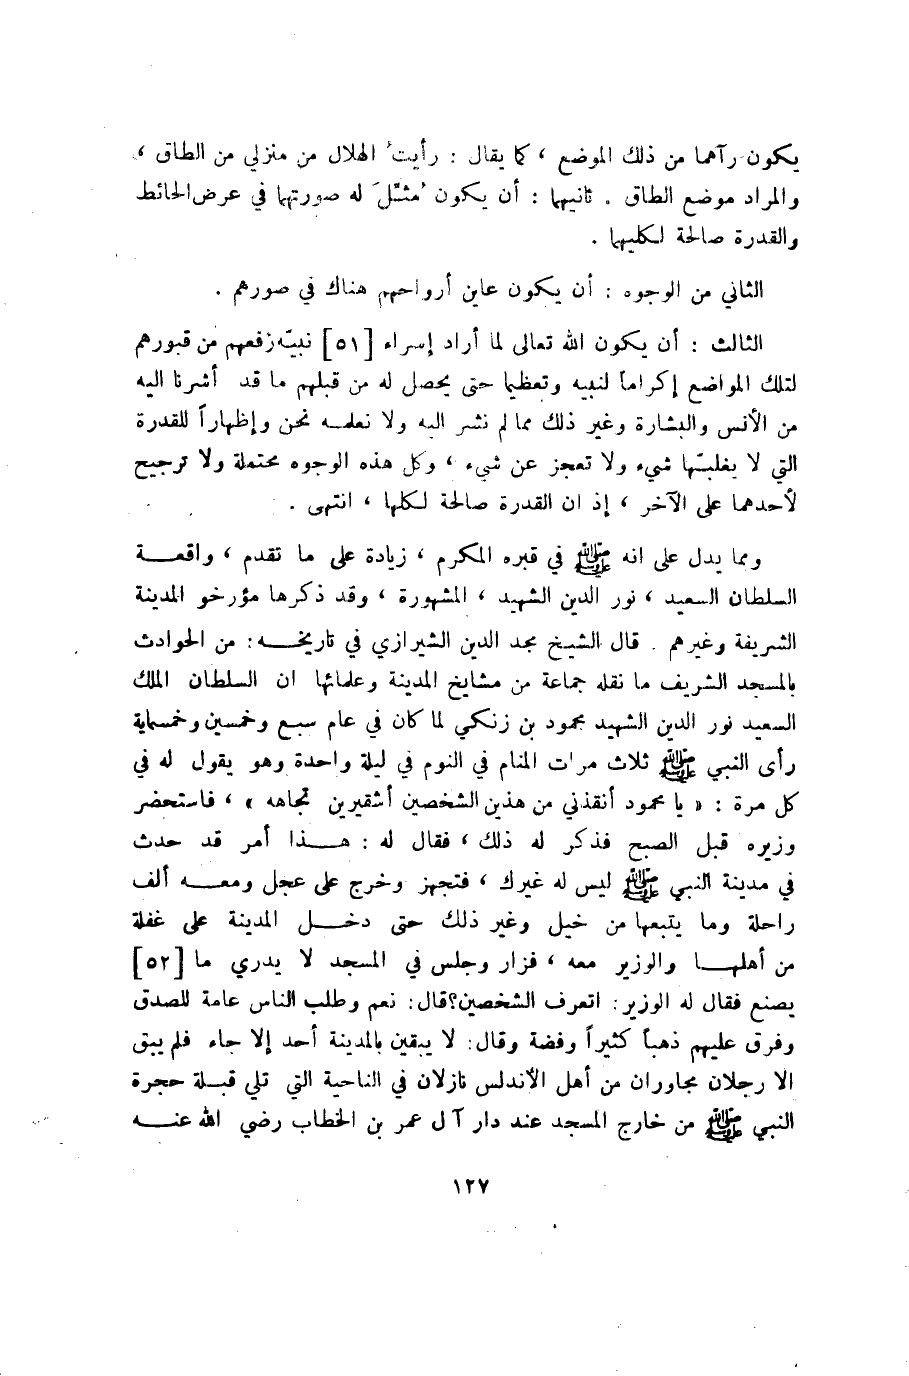 يكون رآهما من ذلك الموضع ، كما يقال : رأيتُ الهلال من منزلي من الطاق ،
والمراد موضع الطاق . ثانيها : أن يكون مُثّلَ له صورتها في عرض الحائط
والقدرة صالحة لكليها .
الثاني من الوجوه : أن يكون عاين أرواحهم هناك في صورهم .
الثالث : أن يكون الله تعالى لما أراد إسراء [٥١] نبيّه رفعهم من قبورهم
لتلك المواضع إكراماً لنبيه وتعظيما حتى يحصل له من قبلهم ما قد أشرنا اليه
من الأنس والبشارة وغير ذلك مما لم نشر اليه ولا نعلمه نحن وإظهاراً للقدرة
التي لا يغلبها شيء ولا تعجز عن شيء ، وكل هذه الوجوه محتملة ولا ترجيح
لأحدهما على الآخر ، إذ ان القدرة صالحة لكلها ، انتهى .
ومما يدل على انه ﷺ في قبره المكرم ، زيادة على ما تقدم ، واقعة
السلطان السعيد ، نور الدين الشهيد ، المشهورة ، وقد ذكرها مؤرخو المدينة
الشريفة وغيرهم . قال الشيخ مجد الدين الشيرازي في تاريخه : من الحوادث
بالمسجد الشريف ما نقله جماعة من مشايخ المدينة وعلمائها ان السلطان الملك
السعيد نور الدين الشهيد محمود بن زنكي لما كان في عام سبع وخمسين وخمسماية
رأى النبي ﷺ ثلاث مرات المنام في النوم في ليلة واحدة وهو يقول له في
كل مرة : « يا محمود أنقذني من هذين الشخصين أشقيرين تجاهه » ، فاستحضر
وزيره قبل الصبح فذكر له ذلك ، فقال له : هذا أمر قد حدث
في مدينة النبي ﷺ ليس له غيرك ، فتجهز وخرج على عجل ومعه ألف
راحلة وما يتبعها من خيل وغير ذلك حتى دخل المدينة على غفلة
من أهلها والوزير معه ، فزار وجلس في المسجد لا يدري ما [٥٢]
يصنع فقال له الوزير : اتعرف الشخصين؟ قال : نعم وطلب الناس عامة للصدق
وفرق عليهم ذهباً كثيراً وفضة وقال : لا يبقين بالمدينة أحد إلا جاء فلم يبق
الا رجلان مجاوران من أهل الأندلس نازلان في الناحية التي تلي قبلة حجرة
النبي ﷺ من خارج المسجد عند دار آل عمر بن الخطاب رضي الله عنه
١٢٧